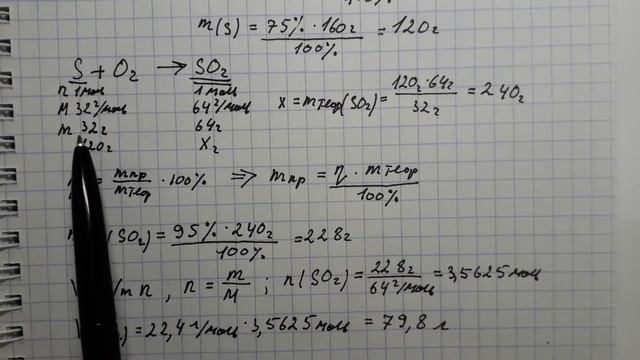 m(S) = 75% · 160г / 100% = 120г
S + O₂ → SO₂
n 1моль 1моль
M 32г/моль 64г/моль x = mтеор(SO₂) = 120г · 64г / 32г = 240г
m 32г 64г
120г Xг
= mпр / mтеор · 100% ⇒ mпр = η · mтеор / 100%
(SO₂) = 95% · 240г / 100% = 228г
n ; n = m / M ; n(SO₂) = 228г / 64г/моль = 3,5625моль
= 22,4л/моль · 3,5625моль = 79,8 л